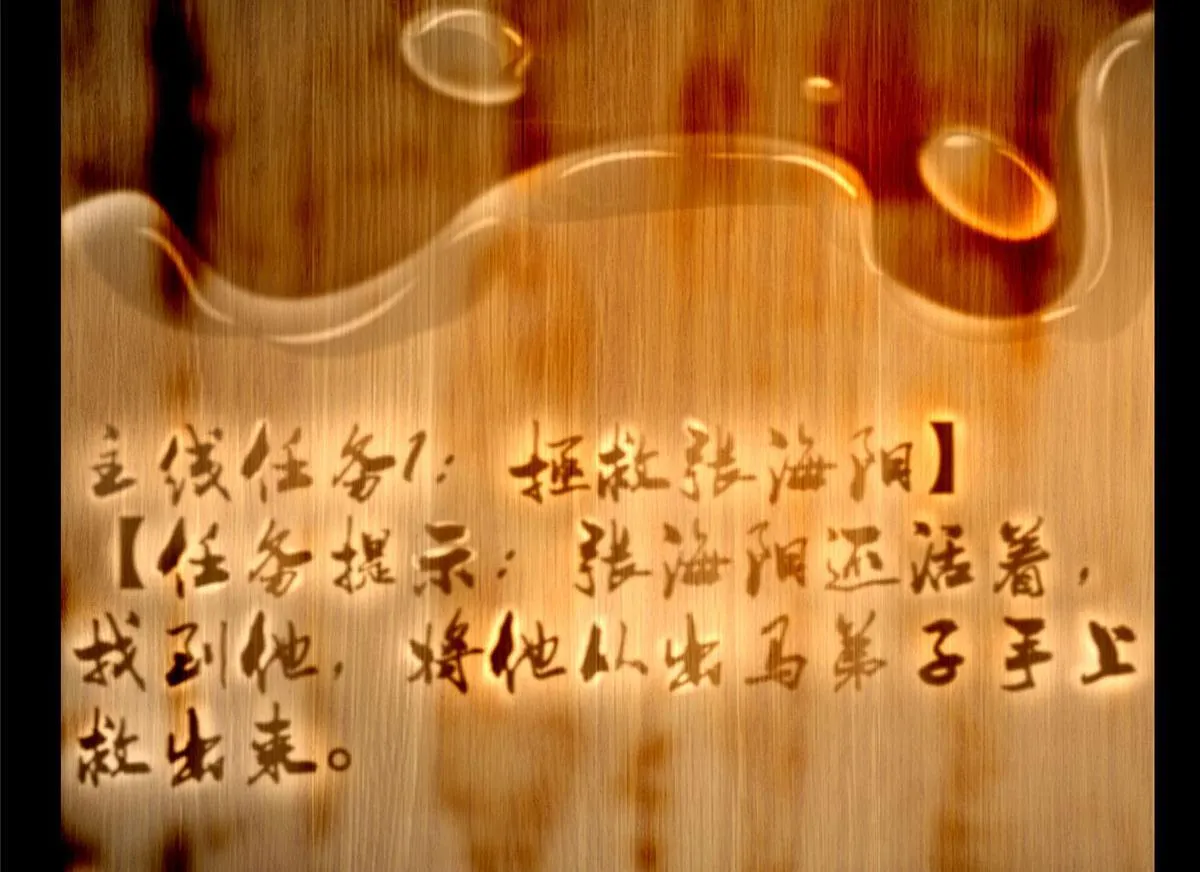 主线任务1：拯救张海阳】
【任务提示：张海阳还活着，
找到他，将他从出马弟子手上
救出来。